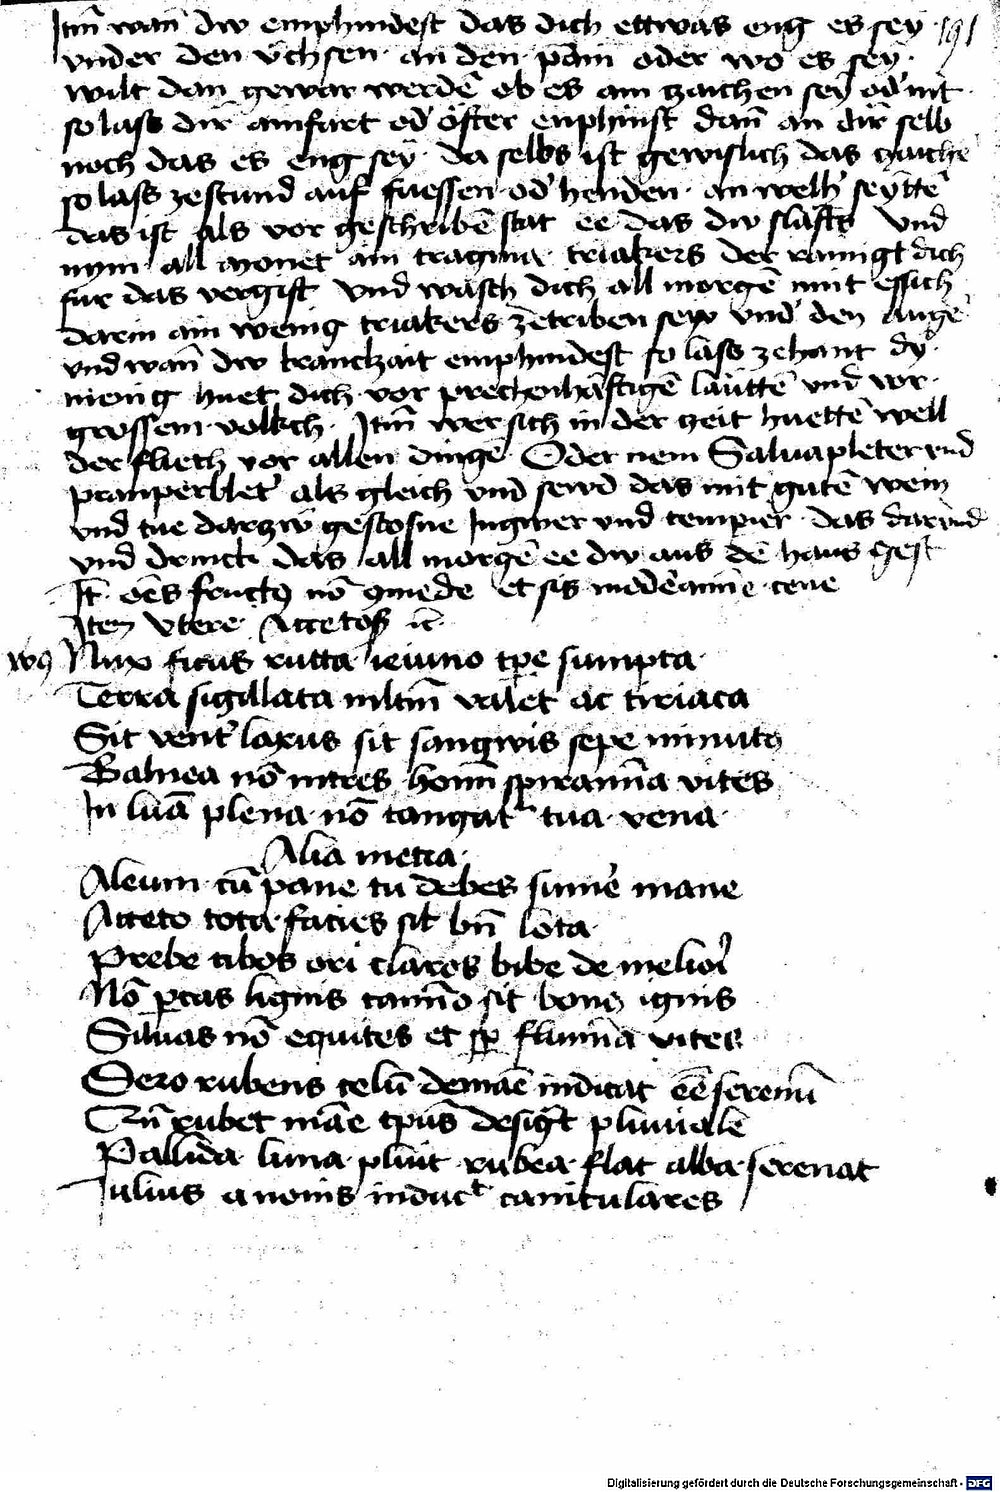 Itm̄ wan̄ dw emphindest das dich ettwas eng es sey 191
vnder den v̈chsen an den pain oder wo es sey
wilt dan gewar werdē ob es ain zaichen sey od' nit
so lass dir ainfart od' öfter enphinst dan̄ an dir selb
noch das es eng sey da selbs ist gewislich das zaichē
so lass zestund auf fuessen od' henden an welh' seyttē
das ist als vor geschribē stat ee das dw slafts vnd
nym all monet ain tragma triakers der rainigt dich
fur das vergift vnd wasch dich all morgē mit essich
darin ain wenig triakers zetriben sey vnd' den augē
vnd wan̄ dw kranckhait emphindest so lass zehant dy
menig huet dich vor prechenhaftigē lauttē vnd vor
grossem volkch Itm̄ wer sich in der zeit huettē well
der fliech vor allen dingē Oder nem Saluapleter vnd
pranperblet' als gleich vnd sewd das mit gutē wein
vnd tue darzw gestosne Ingwer vnd tempier das darvnd
vnd drinck das all morgē ee dw aus dē haus gest
It̄ oēs fructꝰ nō ꝯmede et sis
Item Vtere Accetos
Nux ficus rutta ieiuno tpe sumpta
Terra sigillata mltm̄ valet ac tiriaca
Sit vent' laxus sit sangwis sepe minutꝰ
Balnea nō intres homī spiramīa vites
In lunā plena nō tangat' tua vena
Alia metra
Aleum cū pane tu debes sumē mane
Acceto tota facies sit bn̄ lota
Prebe cibos ori claros bibe de meliori
Nō ꝑcas lignis camīo sit bonꝰ ignis
Siluas nō equites et sp flumīa vites
Sero rubens celū demāe indicat eē serenū
Cū rubet māe tpus desigt pluuiale
Pallida luna pluit rubea flat alba serenat
Iulius a nonis induc't caniculares
Digitalisierung gefördert durch die Deutsche Forschungsgemeinschaft - DFG